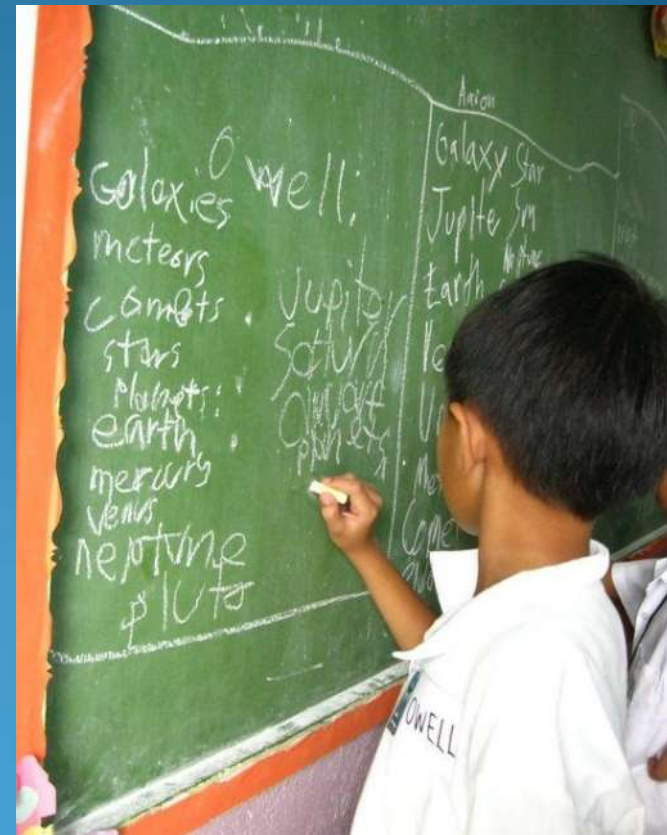 Owell;
Galaxies
meteors
comets.
stars
planets:
earth.
mercury
venus
neptune
pluto
Jupitor
Saturn
planets
Aaron
Galaxy Star
Jupite Sun
Earth Neptune
Come
OWELL